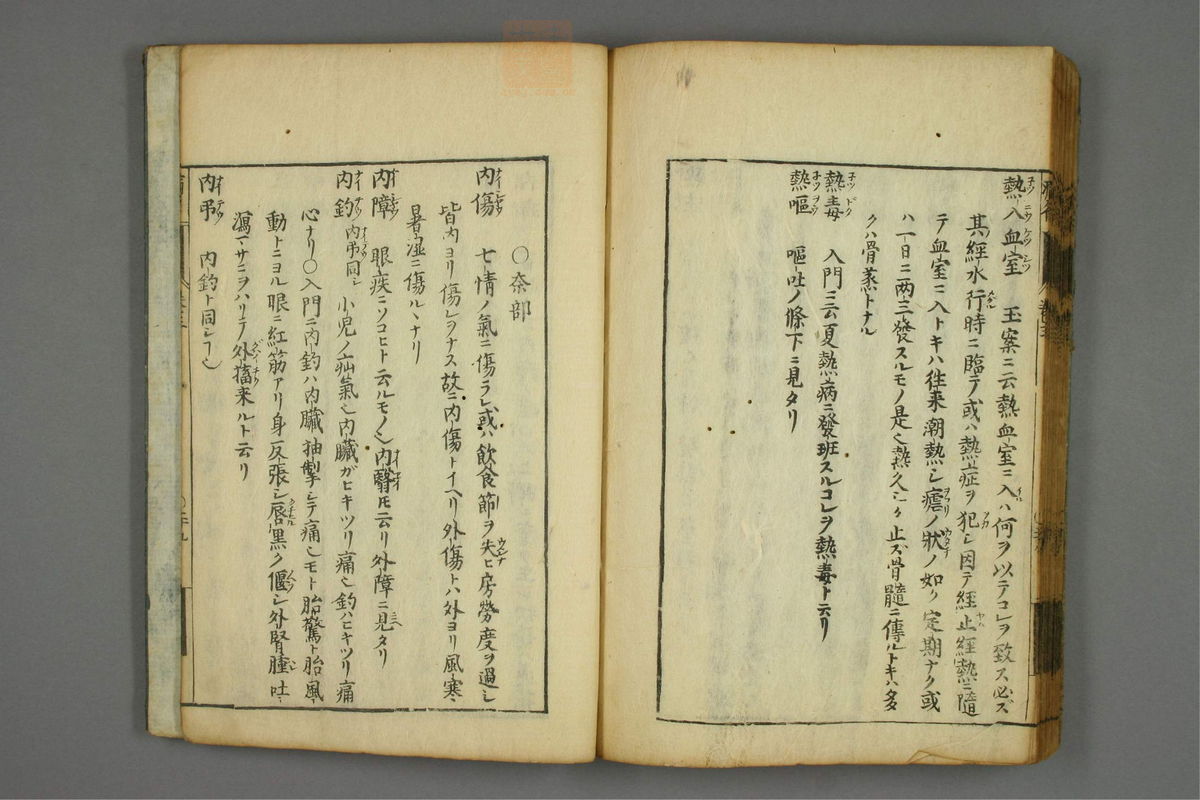 熱入血室 玉案ニ云熱血室ニ入ハ何ヲ以テコレヲ致ス必ズ
其經水行時ニ臨テ或ハ熱症ヲ犯シ因テ經止經熱ニ隨
テ血室ニ入トキハ往来潮熱シ瘧ノ狀ノ如ク定期ナク或
ハ一日ニ両三發スルモノ是也熱久シク止ズ骨髓ニ傳ルトキハ多
クハ骨蒸トナル
熱毒 入門ニ云夏熱病ニ發班スルコレヲ熱毒ト云リ
熱嘔 嘔吐ノ條下ニ見タリ
○奈部
内傷 七情ノ氣ニ傷ラレ或ハ飲食節ヲ失ヒ房勞度ヲ過シ
皆内ヨリ傷レヲナス故ニ内傷トイヘリ外傷トハ外ヨリ風寒
暑湿ニ傷ルヽナリ
内障 眼疾ニソコヒト云ルモノ也内翳トモ云リ外障ニ見タリ
内釣 内吊同シ 小児ノ疝氣也内臓ガヒキツリ痛也釣ハヒキツリ痛
心ナリ○入門ニ内釣ハ内臓抽掣シテ痛也モト胎驚ト胎風
動トニヨル眼ニ紅筋アリ身反張シ唇黒ク傴シ外腎腫吐
瀉マサニヲハリテ外搐来ルト云リ
内吊 内釣ト同シ